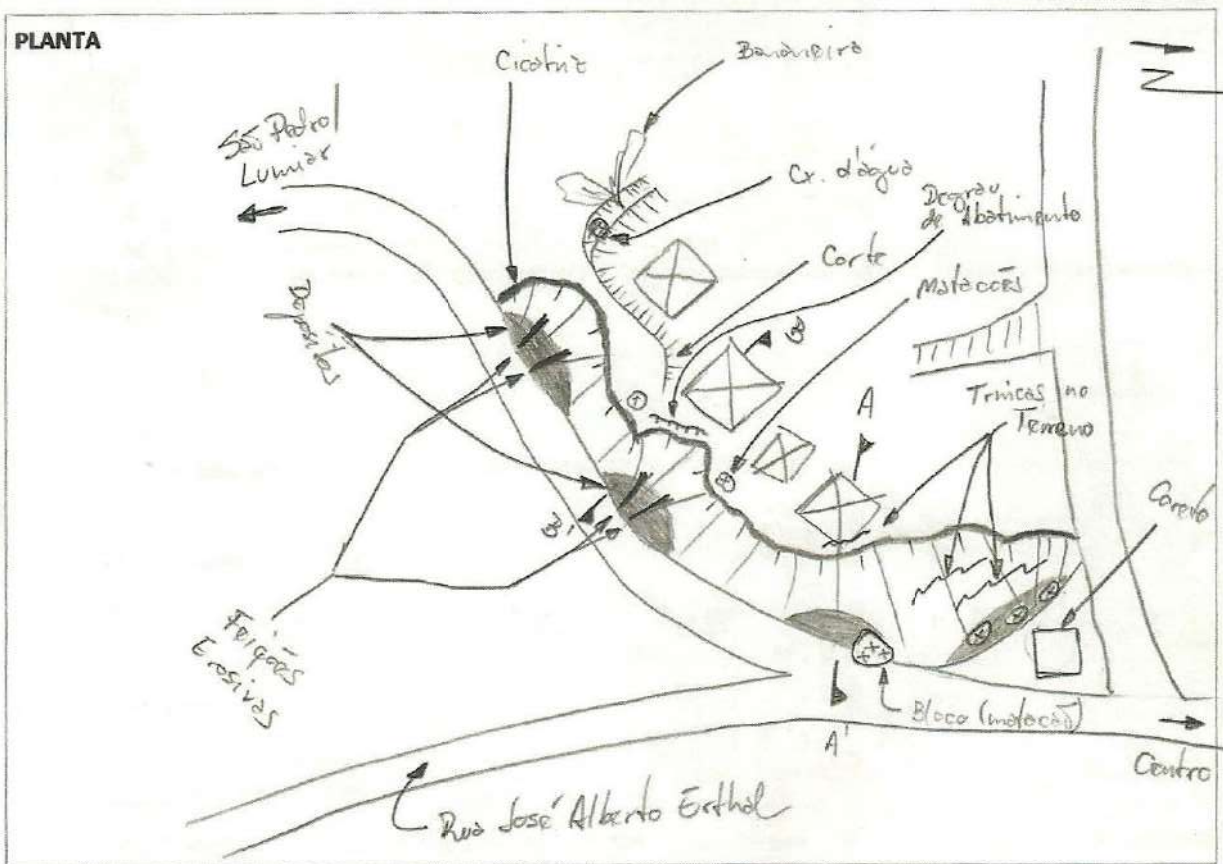 PLANTA
Cicatriz
Bananeira
N
São Pedro/
Lumiar
Cx. d'água
Degrau
de Abatimento
Corte
Matacões
Depósitos
B
A
Trincas no
Terreno
Coreto
B'
Feições
Erosivas
Bloco (matacão)
A'
Centro
Rua José Alberto Erthal